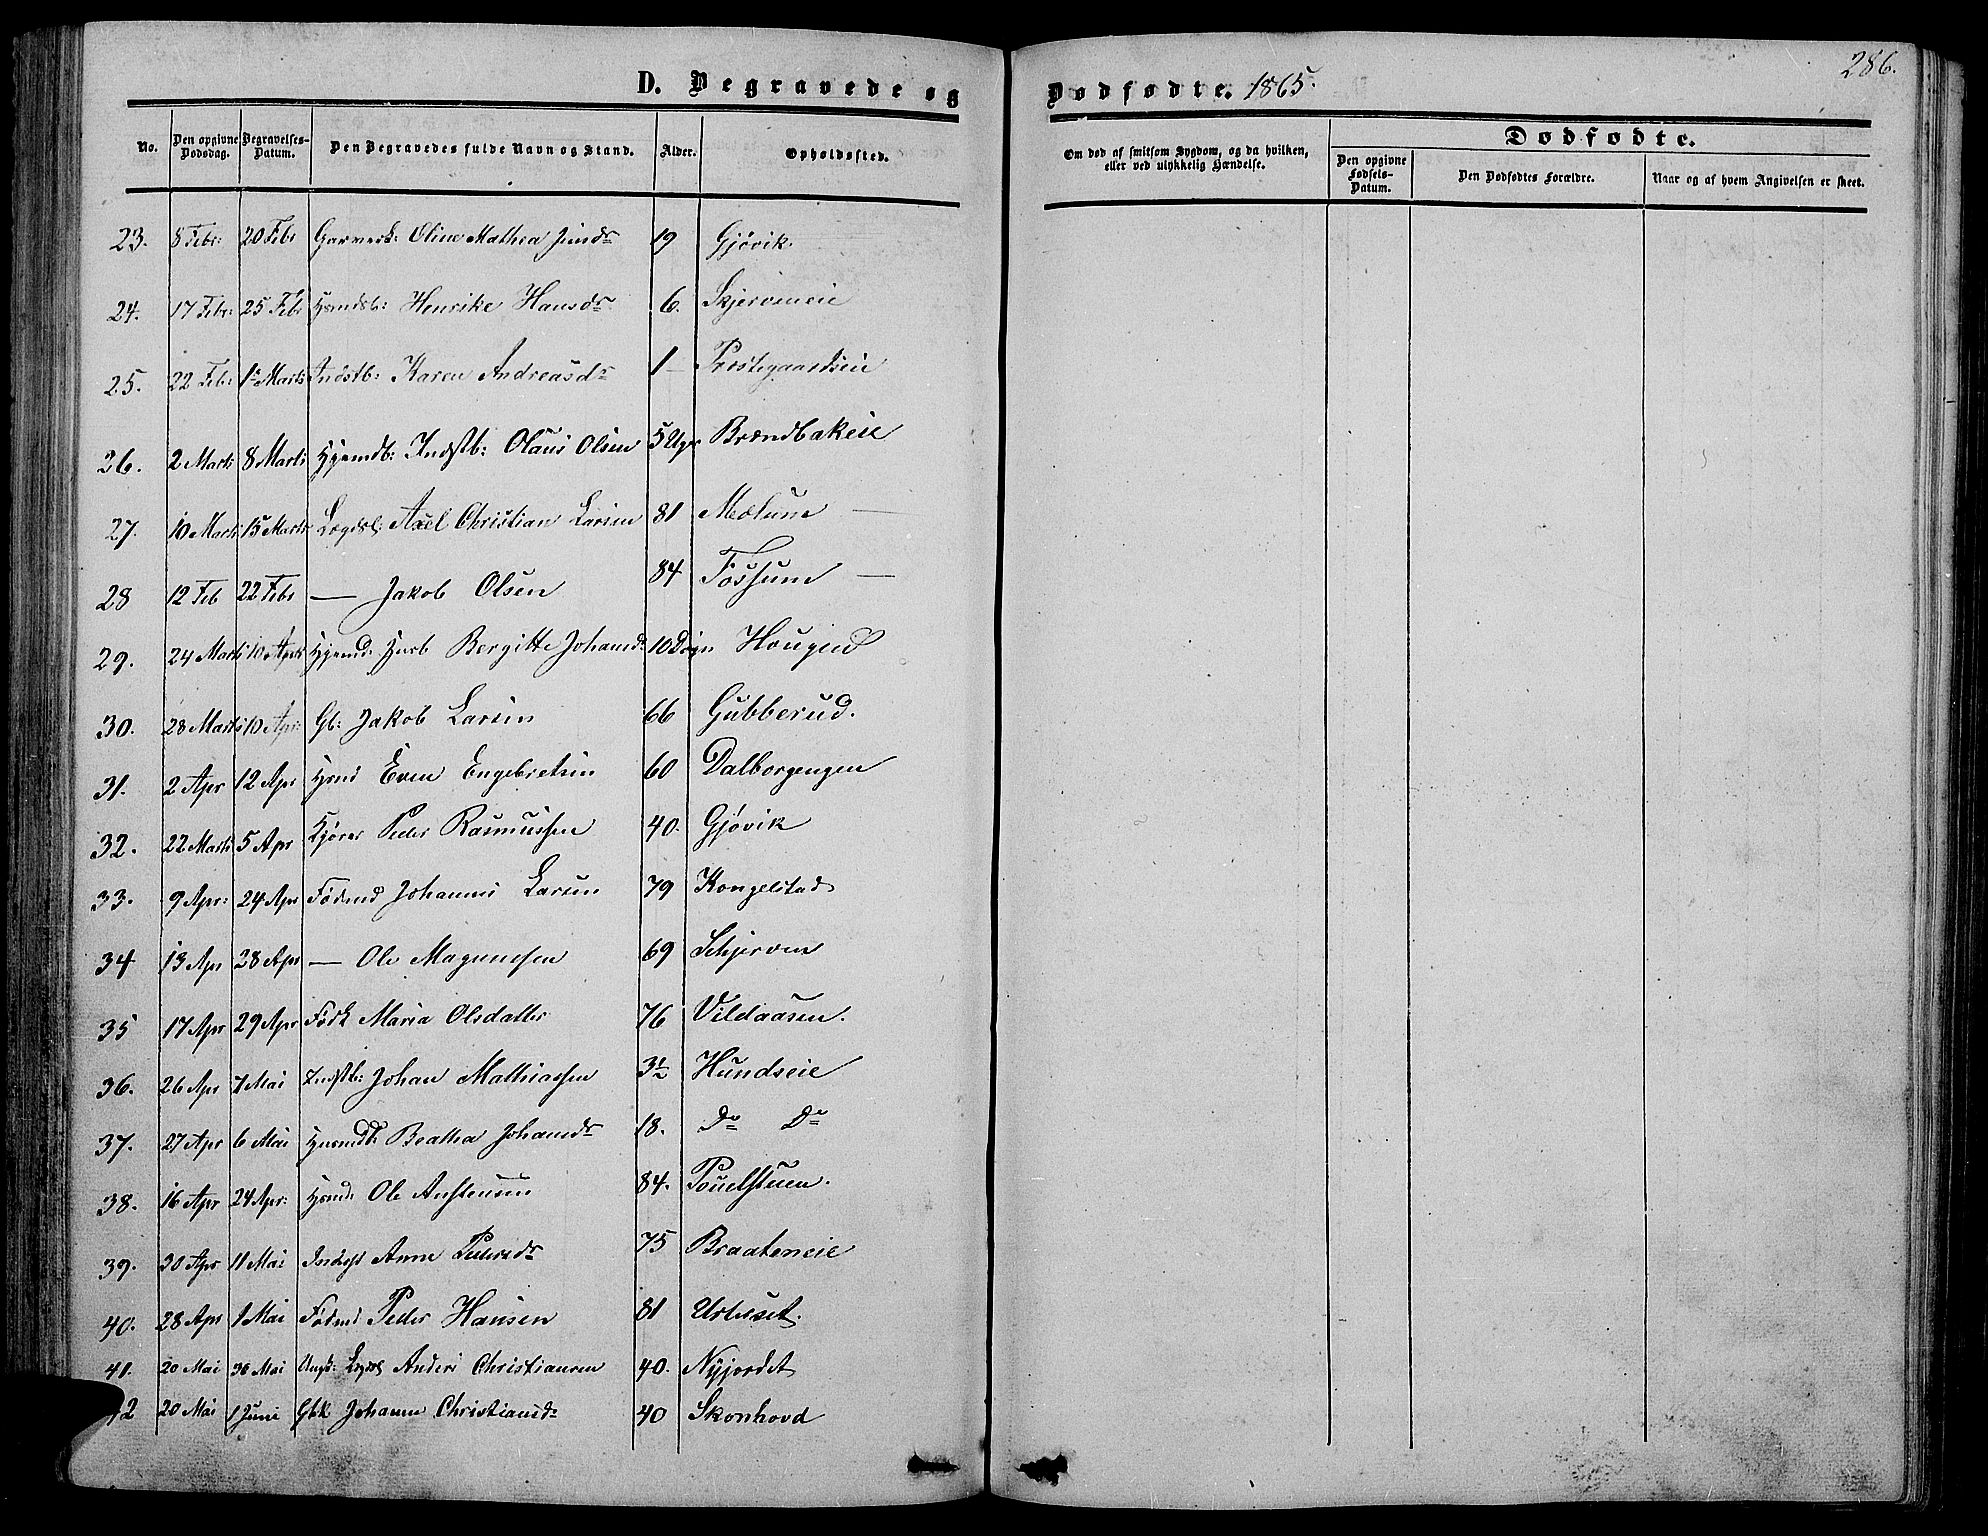 286.
D. Begravede og Dødfødte. 1865.
No. Den opgivne Dødsdag. Begravelses-Datum. Den Begravedes fulde Navn og Stand. Alder. Opholdssted. Om død af smitsom Sygdom, og da hvilken, eller ved ulykkelig Hændelse. Dødfødte. Den opgivne Fødsels-Datum. Den Dødfødtes Forældre. Naar og af hvem Angivelsen er skeet.
23. 8 Febr: 20 Febr Garversk: Oline Mathea 19 Gjøvik.
24. 17 Febr: 25 Febr Hsmdsb: Henrike Hansdr 6. Skjervemeie
25. 22 Feb: 1ste Marts Indstb: Karen Andreasdr 1 Prestegaardseie
26. 2 Marts 8 Marts Indstb: Olaus Olsen 5 Uger Brændbakeie
27. 10 Marts 15 Marts Lægdsl: Axel Christian Larsen 81 Mælum —
28 12 Feb 22 Febr — Jakob Olsen 84 Fossum —
29. 24 Marts 10 April Bergitte Johansd: 10 Døgn
30. 28 Marts 10 Apr: Gb: Jakob Larsen 66 Gubberud.
31. 2 Apr 12 Apr Hsmd Even Engebretsen 60 Dalborgengen
32. 22 Marts 5 Apr Kjører Peder Rasmussen 40. Gjøvik
33. 9 Apr: 24 Apr Fødrmd Johannes Larsen 79 Kongelstad
34 13 Apr 28 Apr — Ole Magnussen 69 Schjerven
35 17 Apr 29 Apr Fødk Maria Olsdatter 76 Vildaasen.
36. 26 Apr 7 Mai Indstb: Johan Mathiassen 3½ Hundseie
37. 27 Apr 6 Mai Husmdb: Beatha Johansdr 18. Do Do
38. 16 Apr 24 Apr: Hsmd: Ole Anstensen 84. Pouelstuen.
39. 30 Apr 11 Mai Indsts Anne Pedersdr 75 Braateneie
40. 28 Apr 1 Mai Fødrmd Peder Hansen 81
41. 20 Mai 30 Mai Ungk: Lægdsl Anders Christiansen 40. Nyjordet
42 20 Mai 1 Juni Gbk Johanne Christiansdr 40 Skonhovd